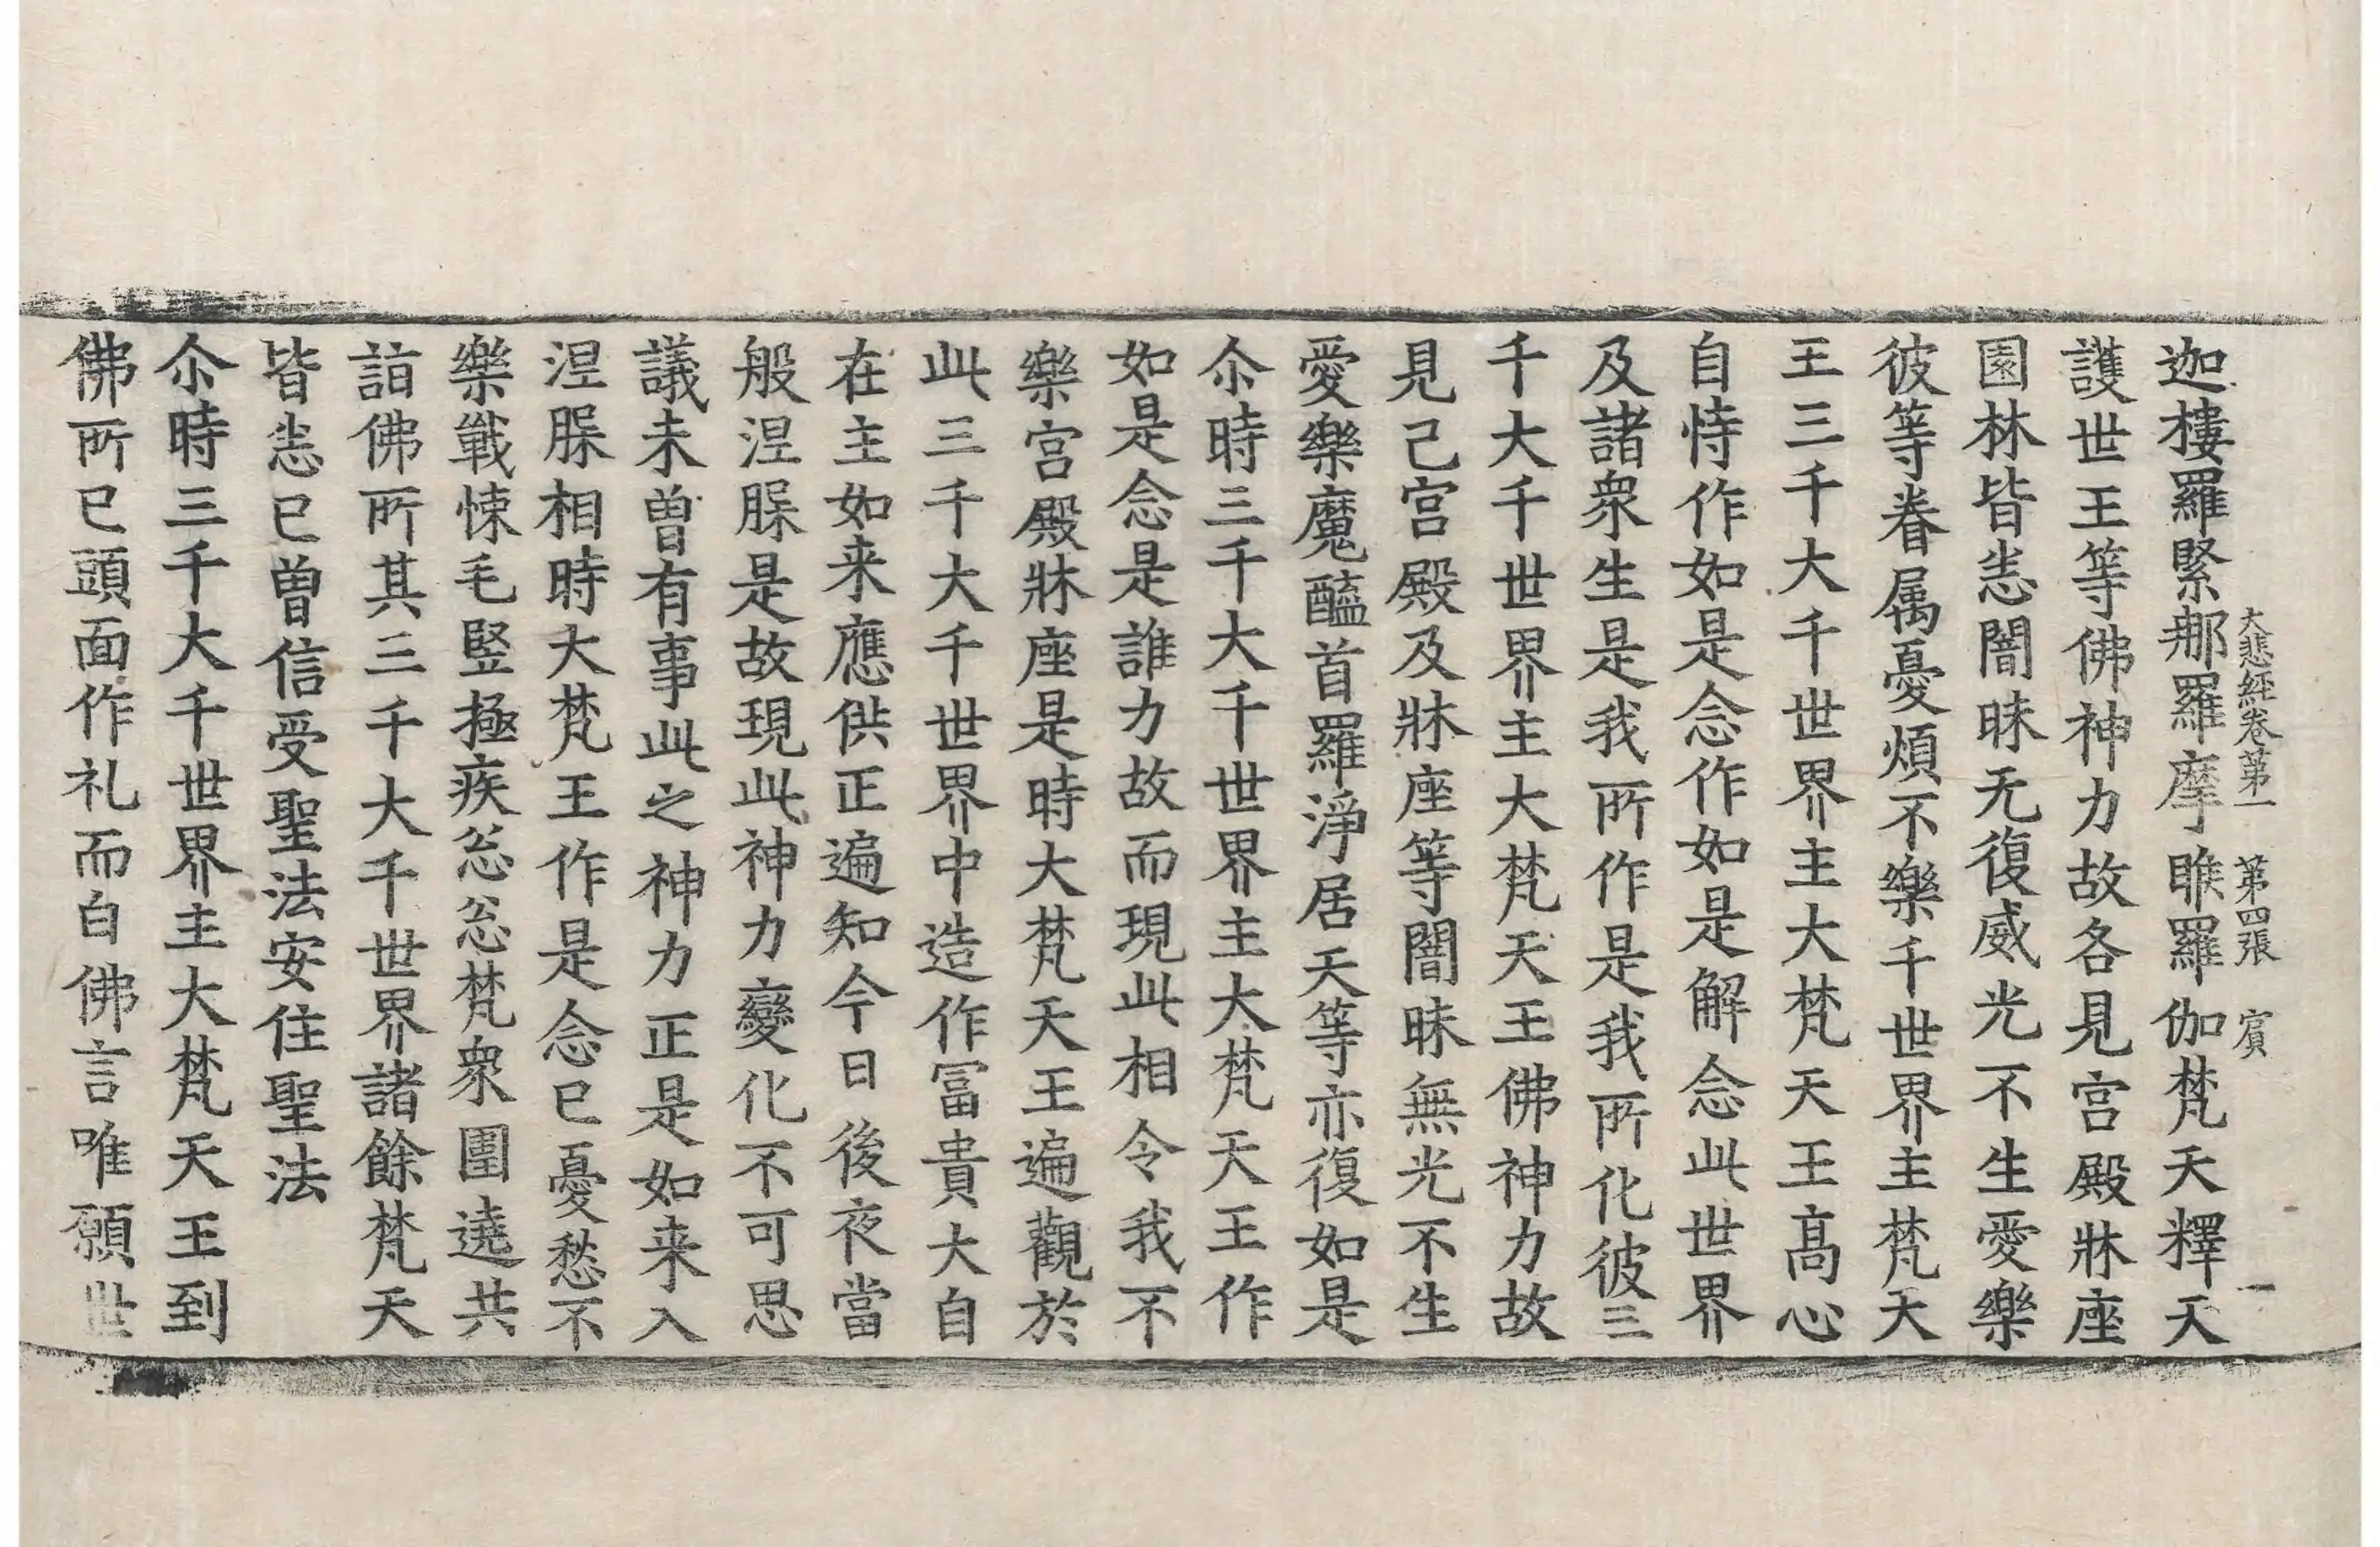 大悲經卷第一　第四張　賓
迦樓羅緊那羅摩睺羅伽梵天釋天
護世王等佛神力故各見宫殿牀座
園林皆悉闇昧无復威光不生愛樂
彼等眷属憂煩不樂千世界主梵天
王三千大千世界主大梵天王髙心
自恃作如是念作如是解念此世界
及諸衆生是我所作是我所化彼三
千大千世界主大梵天王佛神力故
見己宫殿及牀座等闇昧無光不生
愛樂魔醯首羅淨居天等亦復如是
尒時三千大千世界主大梵天王作
如是念是誰力故而現此相令我不
樂宫殿牀座是時大梵天王遍觀於
此三千大千世界中造作冨貴大自
在主如来應供正遍知今日後夜當
般涅槃是故現此神力變化不可思
議未曽有事此之神力正是如来入
涅槃相時大梵王作是念已憂愁不
樂戰悚毛竪極疾忩忩梵衆圍遶共
詣佛所其三千大千世界諸餘梵天
皆悉已曽信受聖法安住聖法
尒時三千大千世界主大梵天王到
佛所已頭面作礼而白佛言唯願世